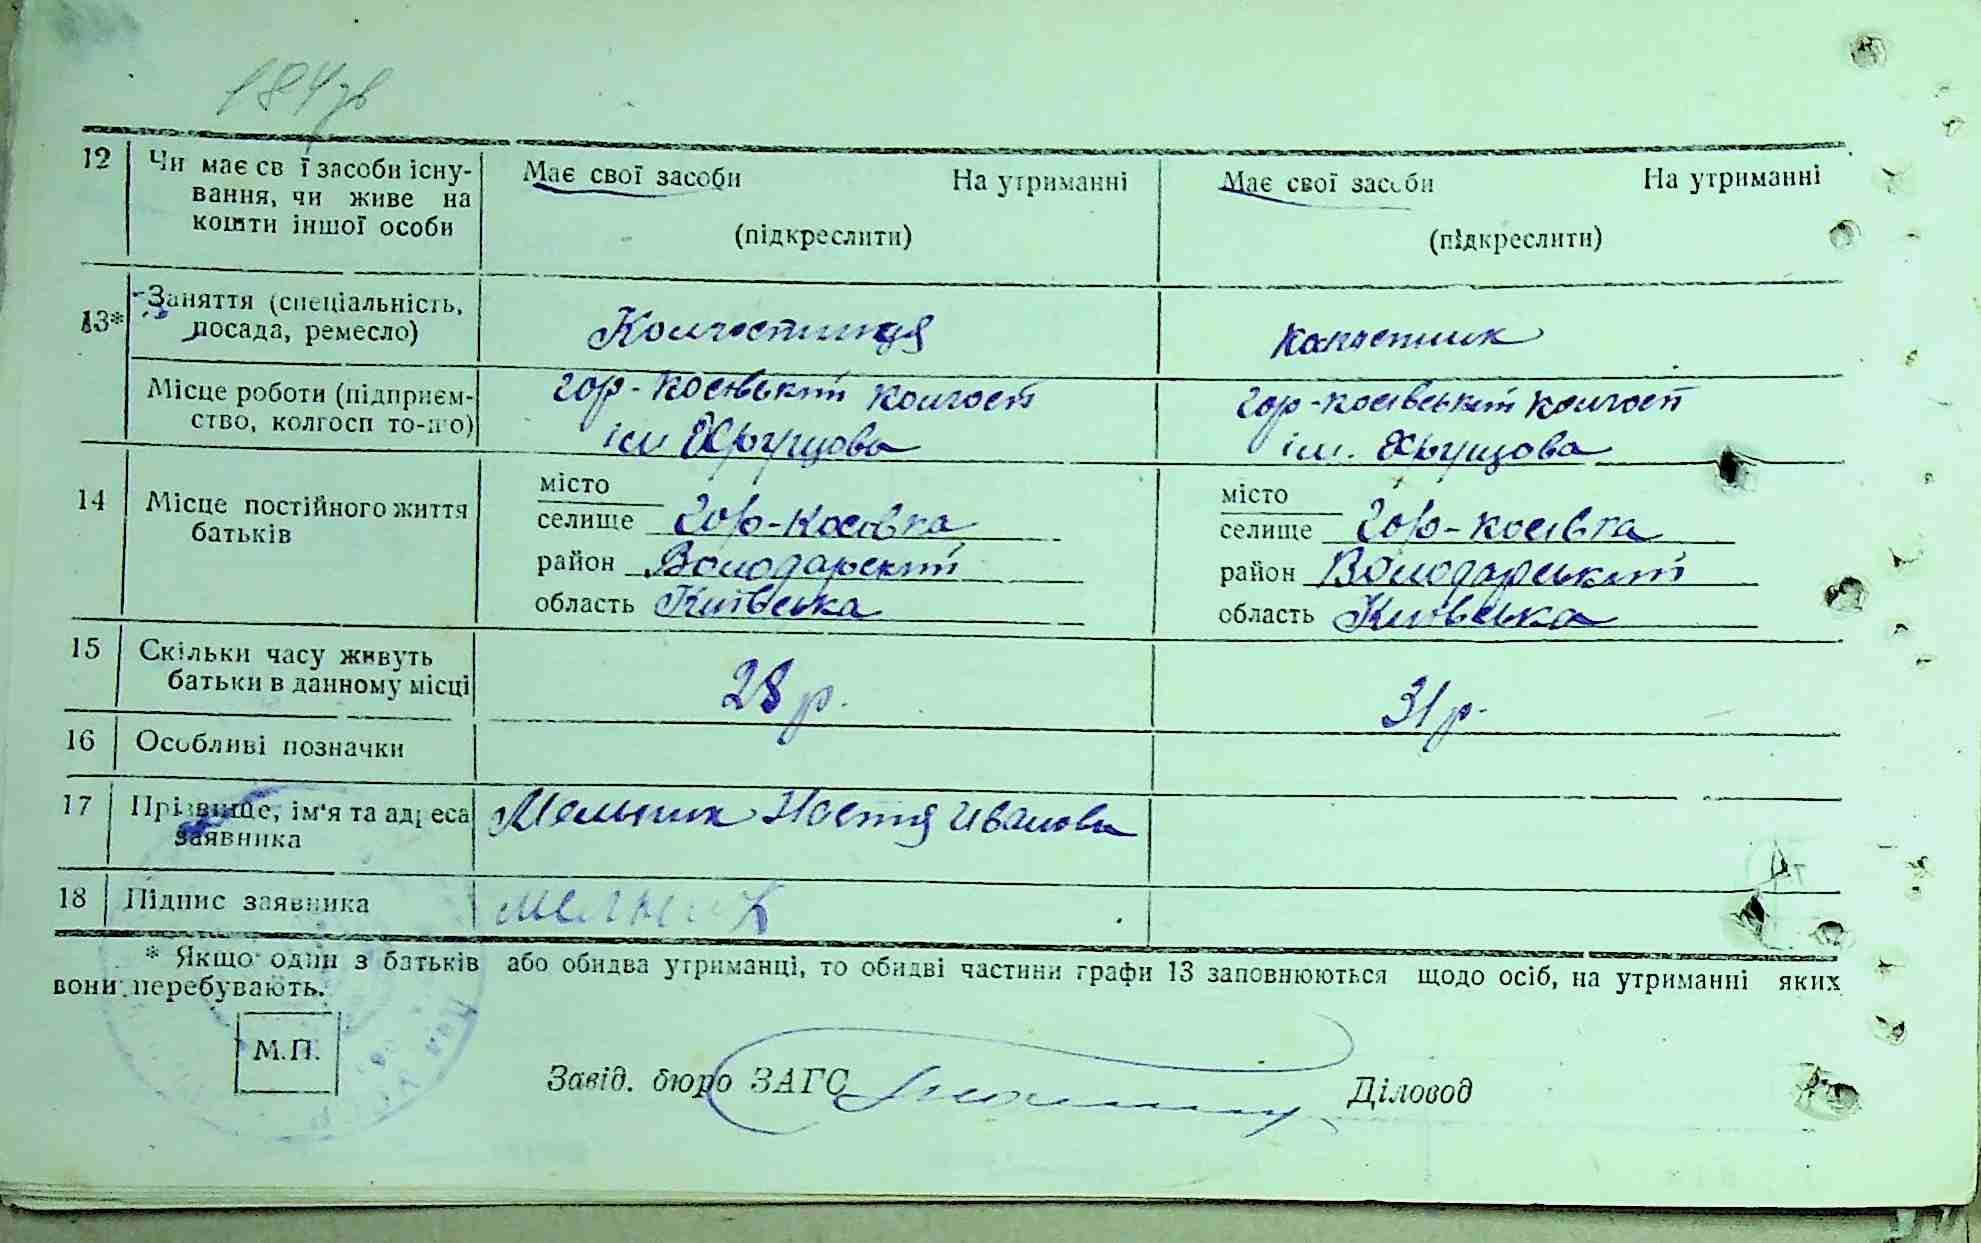 184 зв
12 Чи має св ї засоби існу- Має свої засоби На утриманні Має свої засоби На утриманні
вання, чи живе на
кошти іншої особи (підкреслити) (підкреслити)
13* Заняття (спеціальність,
посада, ремесло) Колгоспниця колгоспник
Місце роботи (підприєм- Гор-косівський колгосп Гор-косівський колгосп
ство, колгосп то-що) ім Хрущова ім. Хрущова
14 Місце постійного життя
батьків
місто місто
селище Гор-косівка селище Гор-косівка
район Володарский район Володарський
область Київська область Київська
15 Скільки часу живуть
батьки в данному місці 28 р. 31 р.
16 Особливі позначки
17 Прізвище, ім'я та адреса Мельник Настя Иванова
заявника
18 Підпис заявника мелник
* Якщо один з батьків або обидва утриманці, то обидві частини графи 13 заповнюються щодо осіб, на утриманні яких
вони перебувають.
М.П.
Завід. бюро ЗАГС Діловод